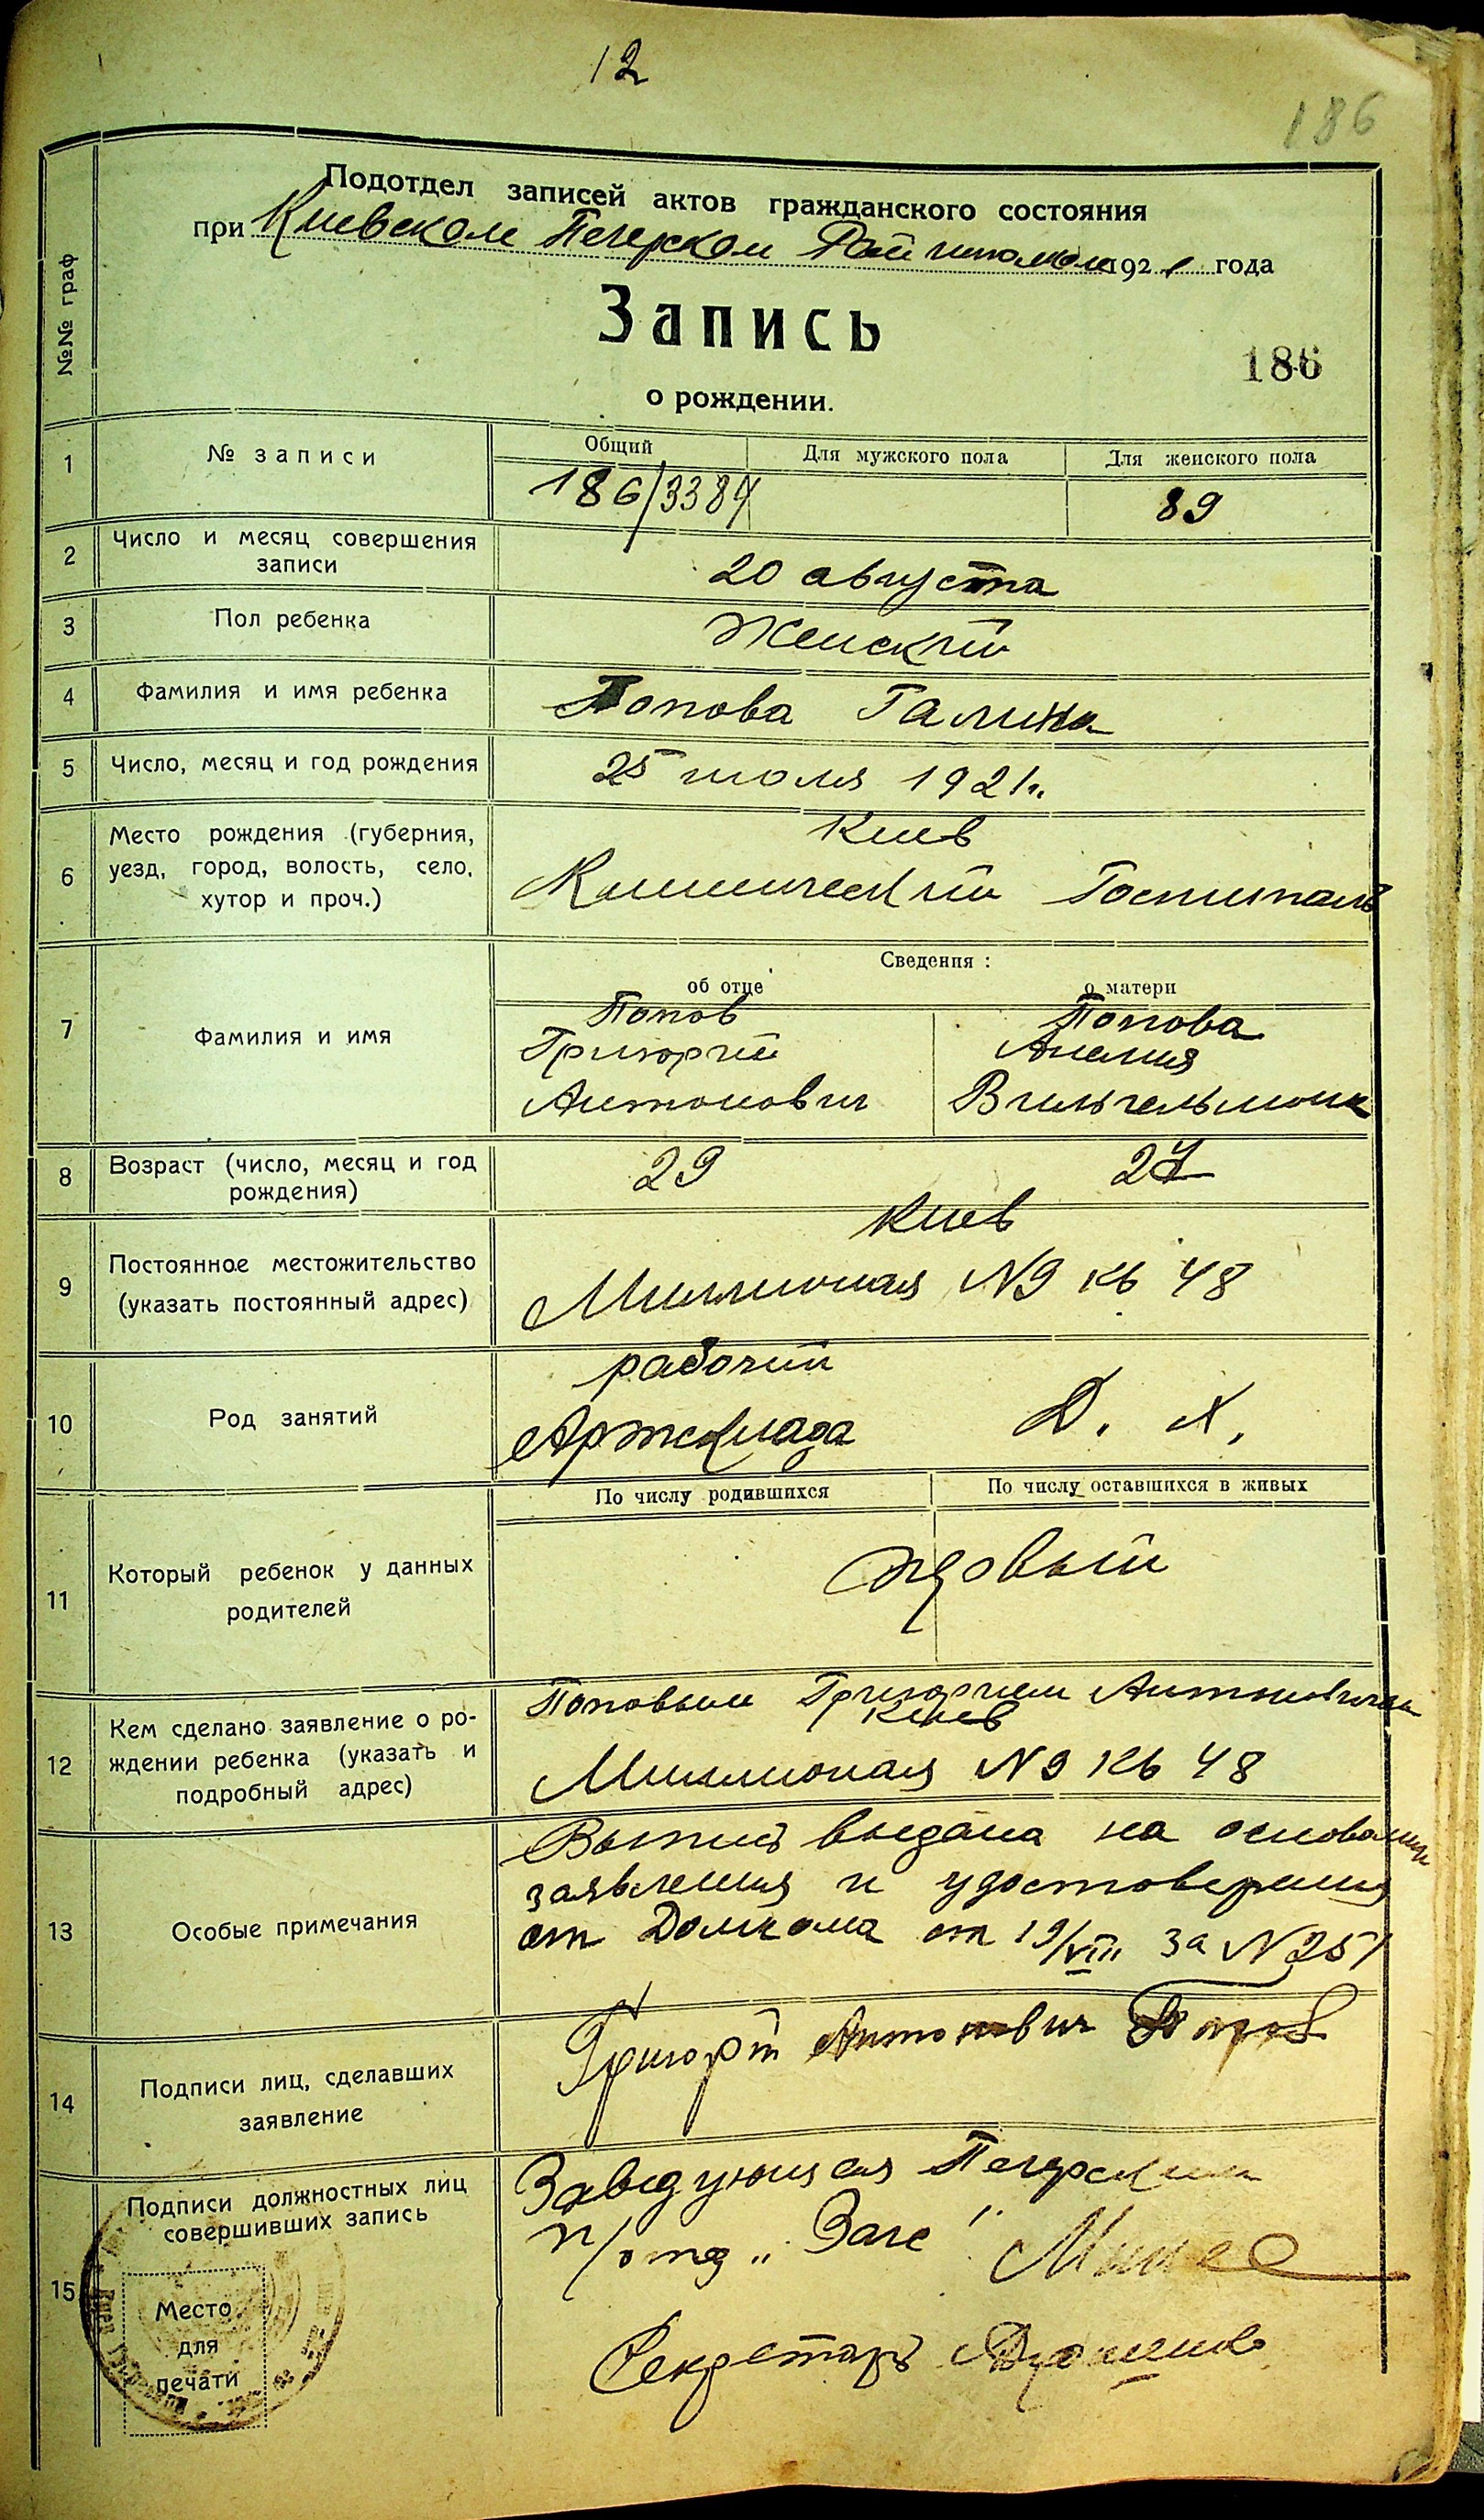 12
186
Подотдел записей актов гражданского состояния
при Киевском Печерском Райисполкоме 1921 года
№№ граф
Запись
186
о рождении.
1 № записи Общий Для мужского пола Для женского пола
186/3384 89
2 Число и месяц совершения записи 20 августа
3 Пол ребенка Женский
4 Фамилия и имя ребенка Попова Галина
5 Число, месяц и год рождения 25 июля 1921 г.
6 Место рождения (губерния, Киев
уезд, город, волость, село, Клинический Госпиталь
хутор и проч.)
Сведения:
об отце о матери
7 Фамилия и имя Попов Попова
Григорий Амелия
Антонович Вильгельмовна
8 Возраст (число, месяц и год рождения) 29 27
9 Постоянное местожительство Киев
(указать постоянный адрес) Миллионая N9 кв 48
10 Род занятий рабочий
Артсклада Д. Х.
По числу родившихся По числу оставшихся в живых
11 Который ребенок у данных первый
родителей
12 Кем сделано заявление о ро- Поповым Григорием Антоновичем
ждении ребенка (указать и Киев
подробный адрес) Миллионая N9 кв 48
13 Особые примечания Выпись выдана на основании
заявления и удостоверения
от Домкома от 19/VIII за N251
14 Подписи лиц, сделавших Григорій Антонович Попов
заявление
15 Подписи должностных лиц Заведующая Печерским
совершивших запись п/отд „Загс"
Место
для
печати
Секретарь